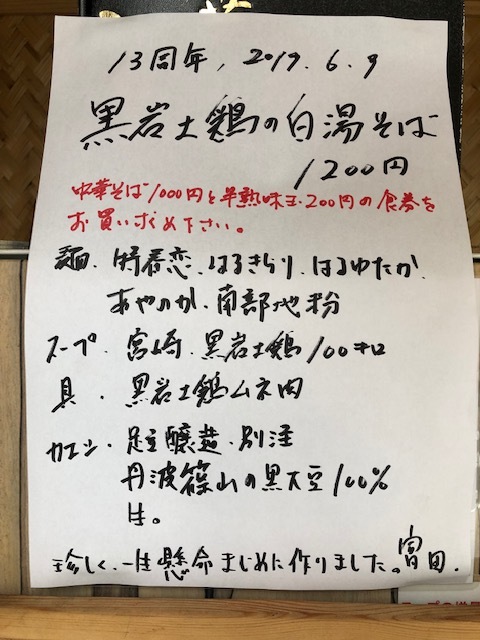 13周年, 2019.6.9
黒岩土鶏の白湯そば
1200円
中華そば1000円と半熟味玉200円の食券を
お買い求め下さい。
麺. 春よ恋、はるきらり、はるゆたか、
あやひかり、南部地粉
スープ. 宮崎. 黒岩土鶏100キロ
具. 黒岩土鶏ムネ肉
カエシ. 足立醸造. 別注
丹波篠山の黒大豆100%
生。
珍しく、一生懸命まじめに作りました。富田.